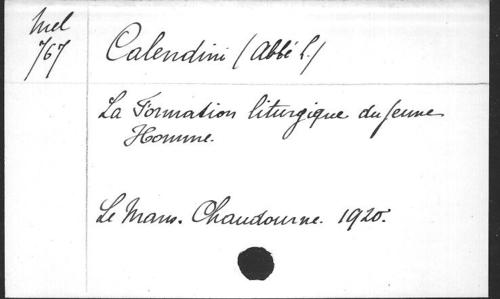 Mel
767
Calendini (Abbé L.)
La Formation liturgique du Jeune
Homme.
Le Mans. Chaudourne. 1920.